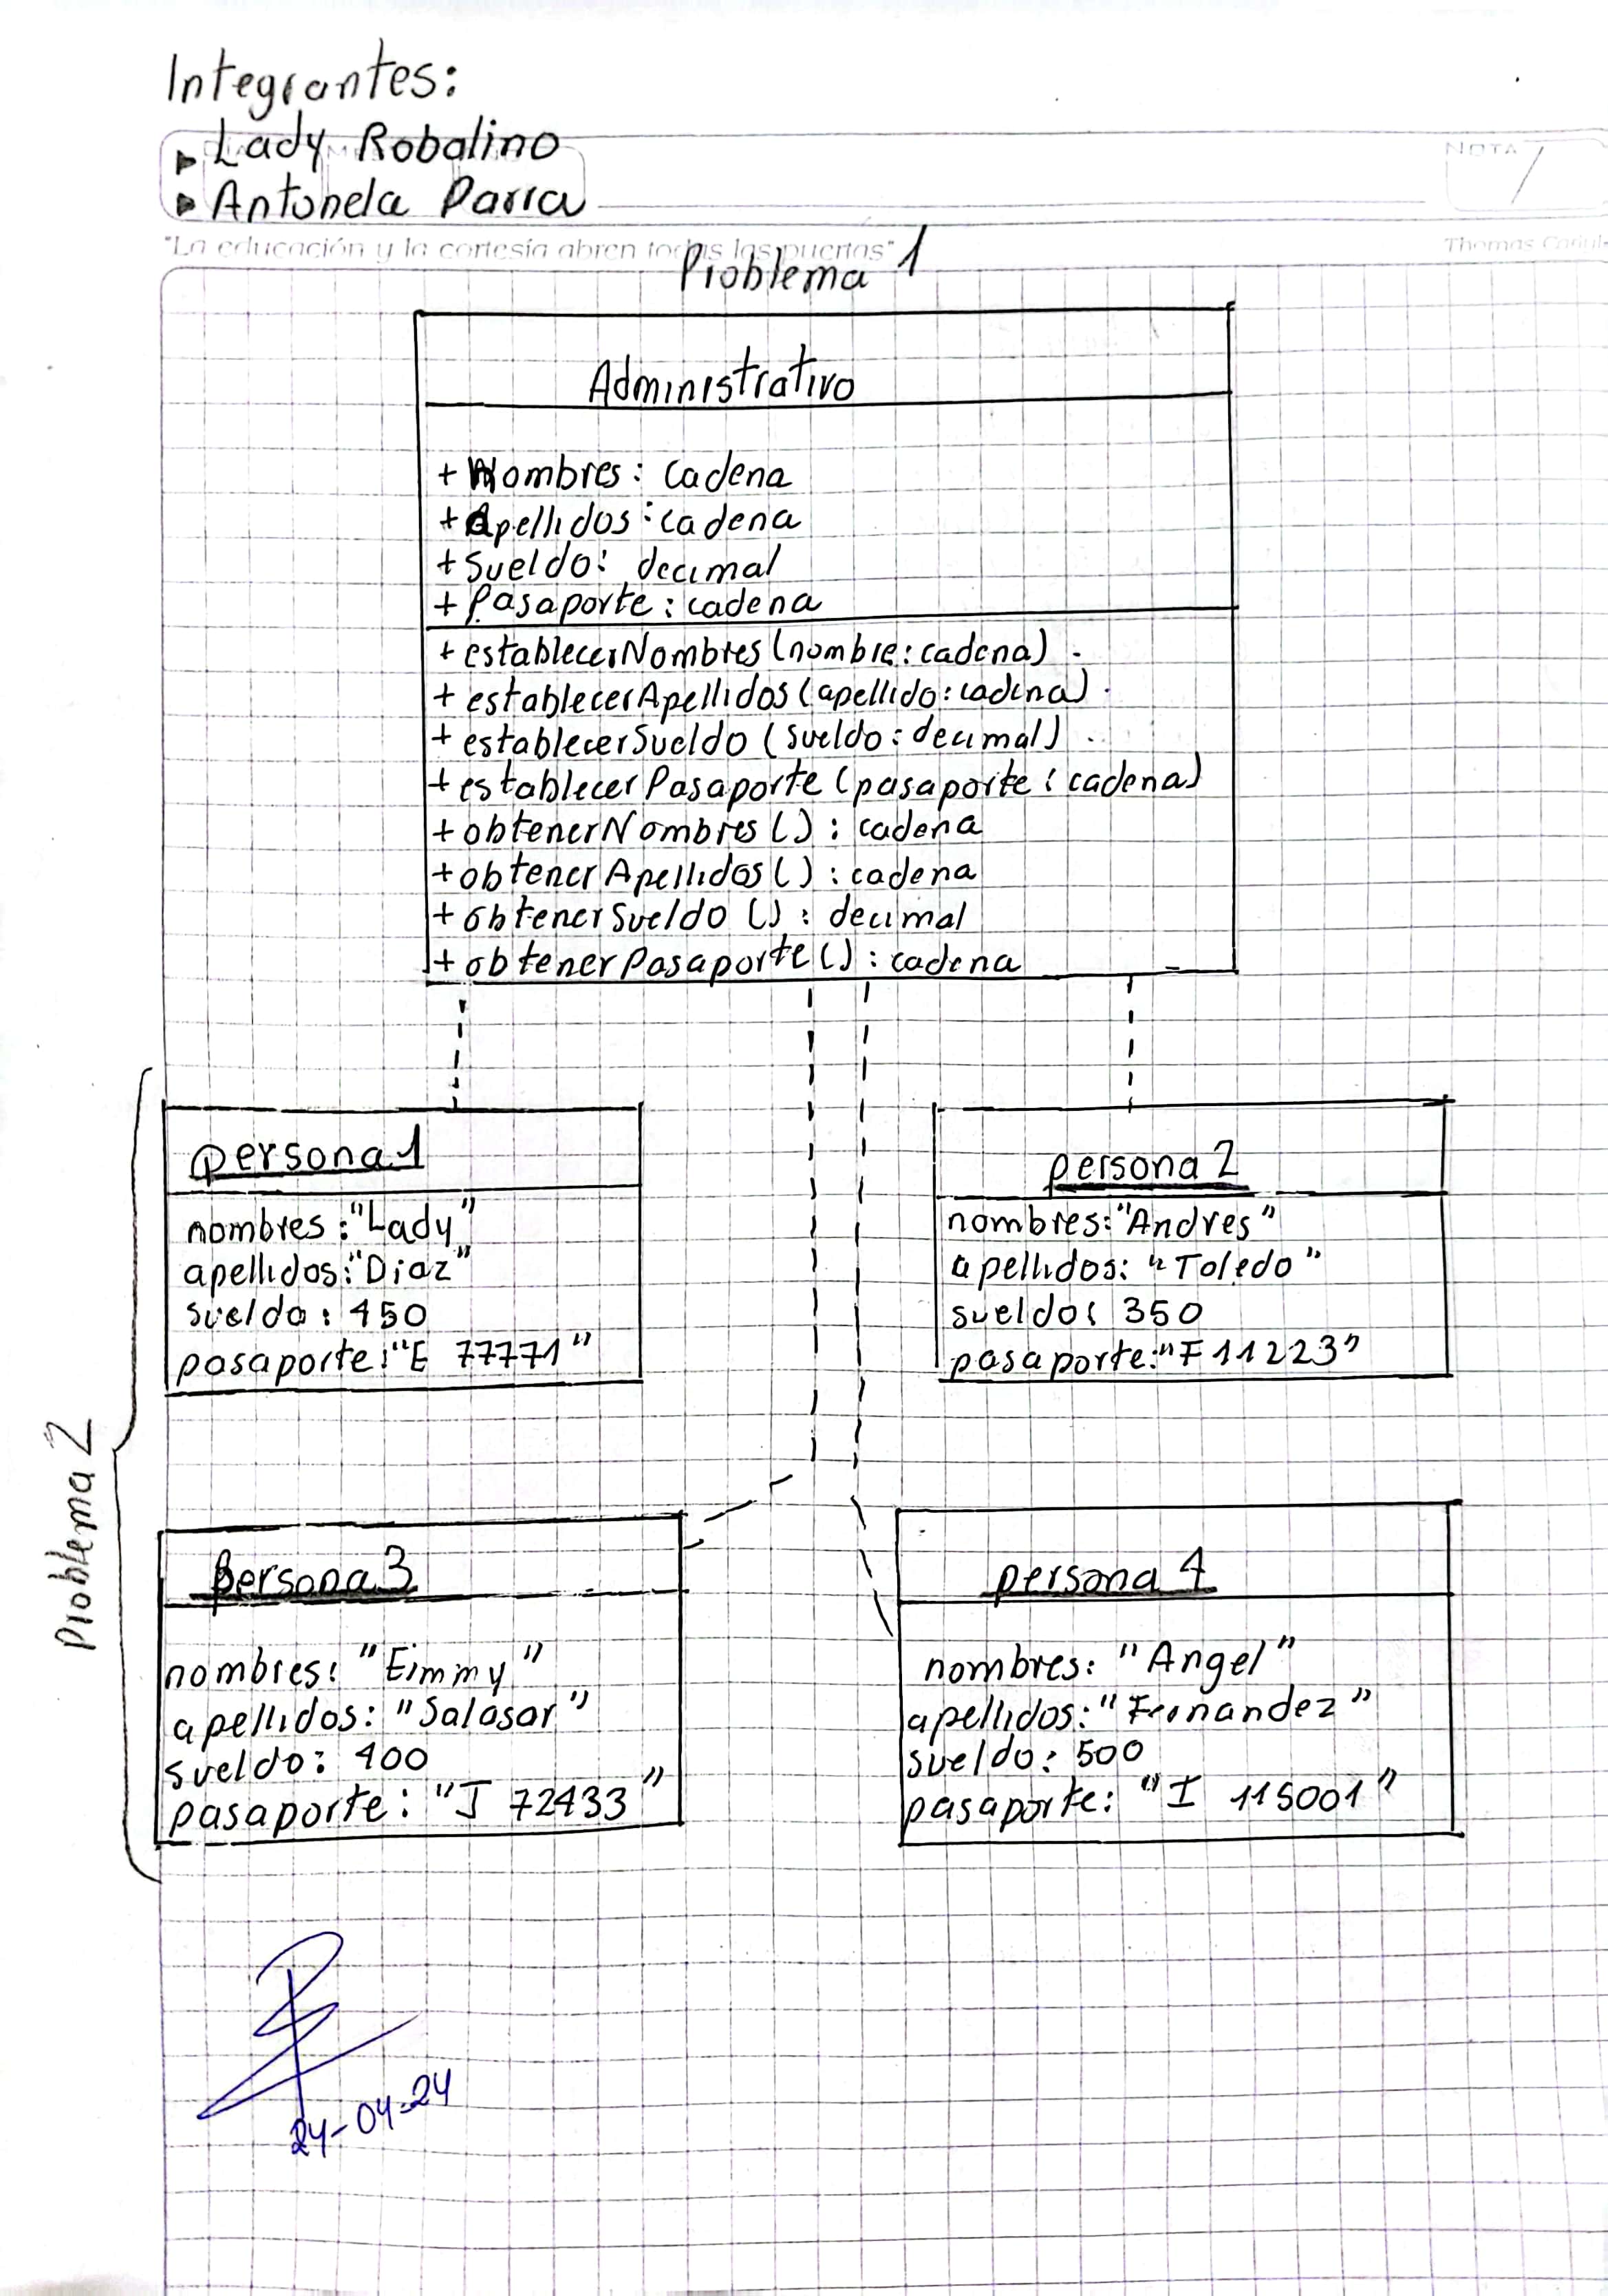 Integrantes:
▸ Lady Robalino
▸ Antonela Parra
NOTA
"La educación y la cortesía abren todas las puertas"
Thomas
Problema 1
Administrativo
+ Nombres: cadena
+ Apellidos: cadena
+ Sueldo: decimal
+ Pasaporte: cadena
+ establecerNombres(nombre: cadena)
+ establecerApellidos(apellido: cadena)
+ establecerSueldo (sueldo: decimal)
+ establecerPasaporte (pasaporte: cadena)
+ obtenerNombres(): cadena
+ obtenerApellidos(): cadena
+ obtenerSueldo (): decimal
+ obtenerPasaporte(): cadena
Problema 2
persona1
nombres: "Lady"
apellidos: "Diaz"
sueldo: 450
pasaporte: "E 77771"
persona 2
nombres: "Andres"
apellidos: "Toledo"
sueldo: 350
pasaporte: "F11223"
persona3
nombres: "Eimmy"
apellidos: "Salasar"
sueldo: 400
pasaporte: "J 72433"
persona 4
nombres: "Angel"
apellidos: "Fernandez"
sueldo: 500
pasaporte: "I 115001"
24-04-24